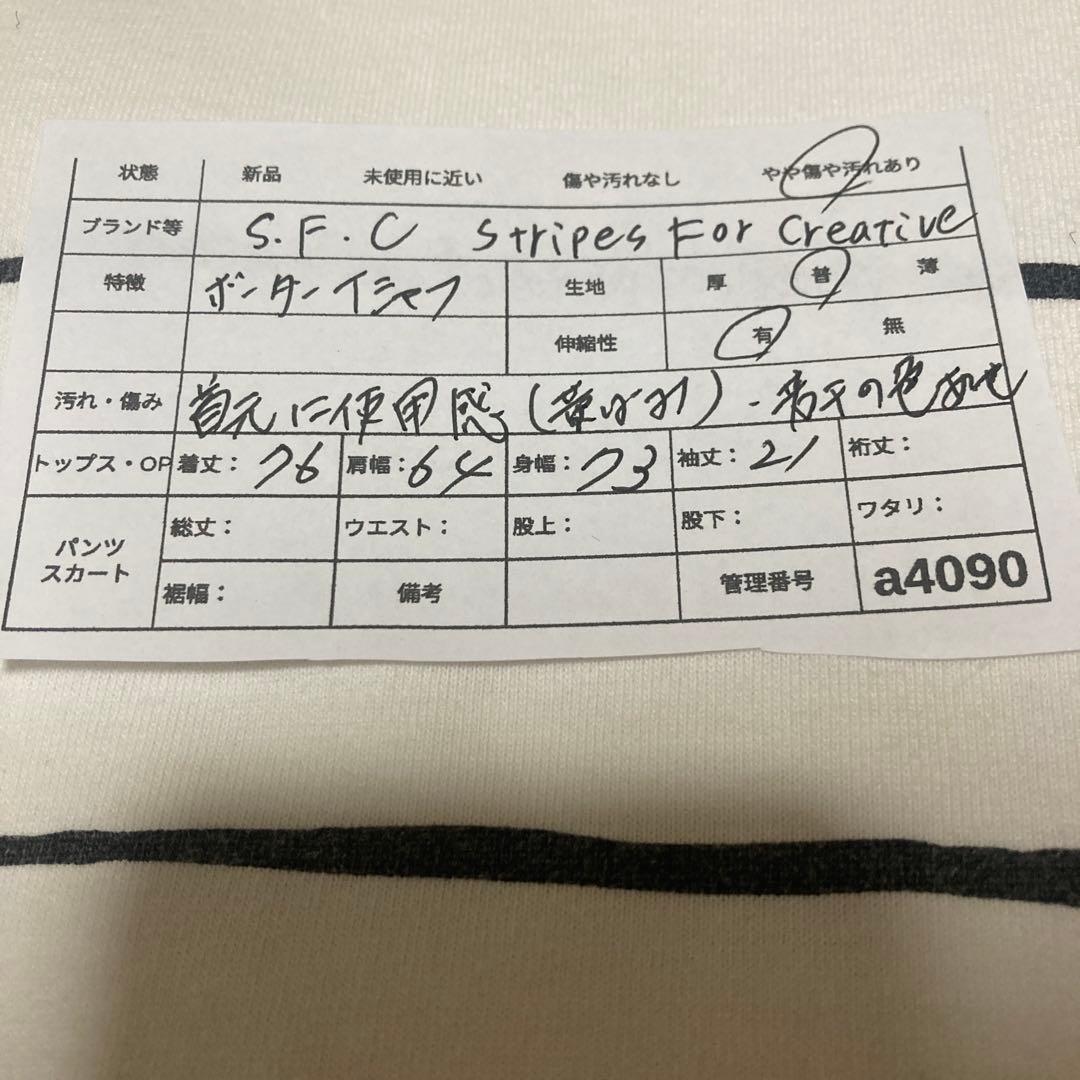 状態 新品 未使用に近い 傷や汚れなし やや傷や汚れあり
ブランド等 S.F.C Stripes For Creative
特徴 ボーダーTシャツ 生地 厚 普 薄
伸縮性 有 無
汚れ・傷み 首元に使用感(黄ばみ)・若干の色あせ
トップス・OP 着丈: 76 肩幅: 64 身幅: 73 袖丈: 21 裄丈:
パンツ スカート 総丈: ウエスト: 股上: 股下: ワタリ:
裾幅: 備考 管理番号 a4090